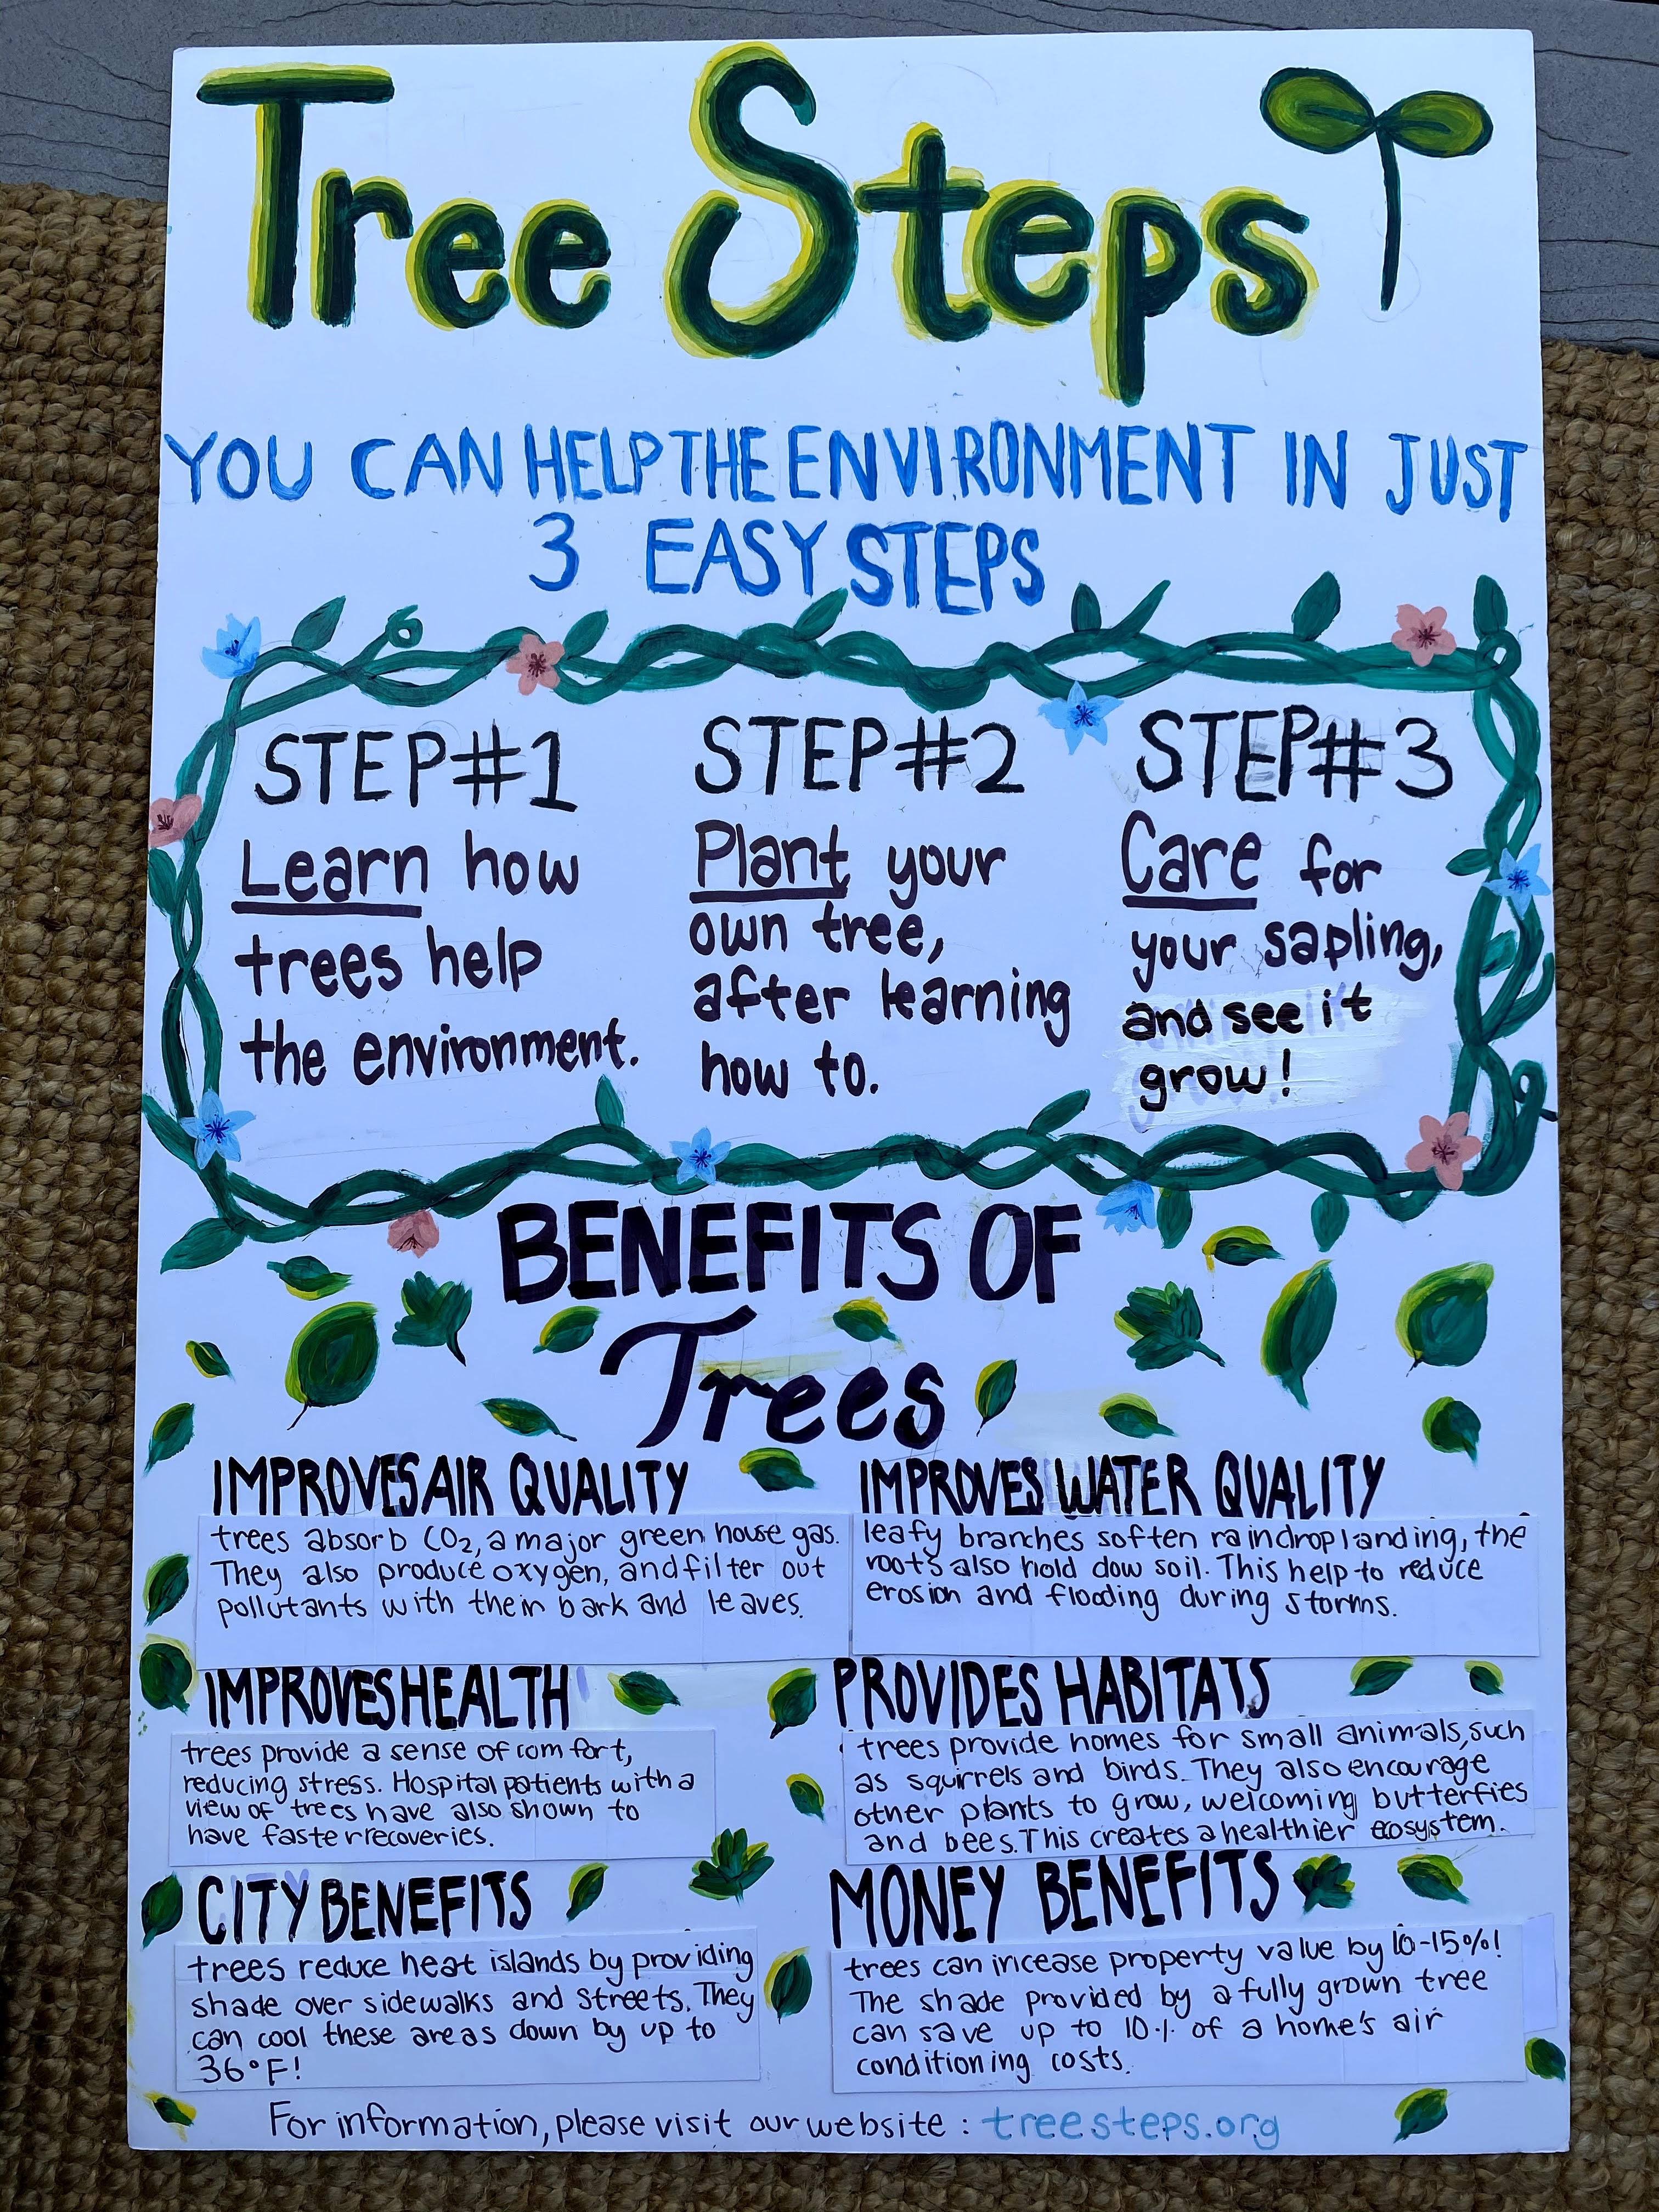 Tree Steps
YOU CAN HELP THE ENVIRONMENT IN JUST
3 EASY STEPS
STEP#1
Learn how
trees help
the environment.
STEP#2
Plant your
own tree,
after learning
how to.
STEP#3
Care for
your sapling,
and see it
grow!
BENEFITS OF
Trees
IMPROVES AIR QUALITY
trees absorb CO₂, a major green house gas.
They also produce oxygen, and filter out
pollutants with their bark and leaves.
IMPROVES WATER QUALITY
leafy branches soften raindrop landing, the
roots also hold dow soil. This help to reduce
erosion and flooding during storms.
IMPROVES HEALTH
trees provide a sense of comfort,
reducing stress. Hospital patients with a
view of trees have also shown to
have faster recoveries.
PROVIDES HABITATS
trees provide homes for small animals, such
as squirrels and birds. They also encourage
other plants to grow, welcoming butterflies
and bees. This creates a healthier ecosystem.
CITY BENEFITS
trees reduce heat islands by providing
shade over sidewalks and streets. They
can cool these areas down by up to
36°F!
MONEY BENEFITS
trees can incease property value by 10-15%!
The shade provided by a fully grown tree
can save up to 10% of a home's air
conditioning costs.
For information, please visit our website : treesteps.org